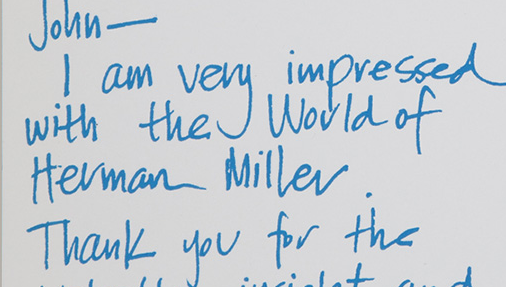 John—
I am very impressed
with the World of
Herman Miller.
Thank you for the
insight and